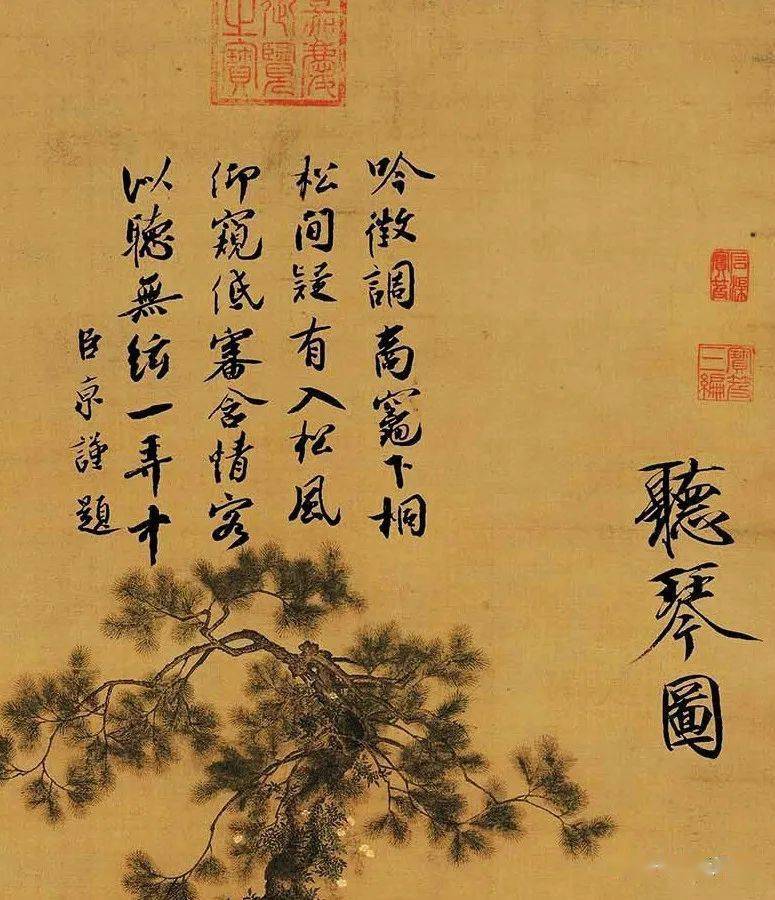 聽琴圖
吟徵調商竈下桐
松間疑有入松風
仰窺低審含情客
似聽無絃一弄中
臣京謹題
嘉慶御覽之寶
石渠寶笈
寶笈三編